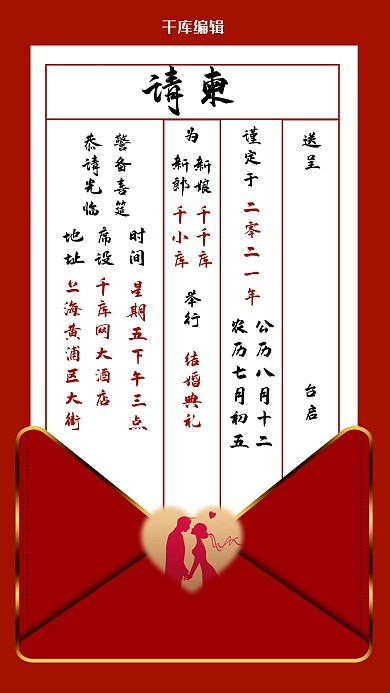 千库编辑
请柬
送呈
台启
谨定于
二零二一年
公历八月十二
农历七月初五
为
新娘 千千库
新郎 千小库
举行
结婚典礼
警备喜筵
恭请光临
时间
星期五下午三点
席设
千库网大酒店
地址
上海黄浦区大街